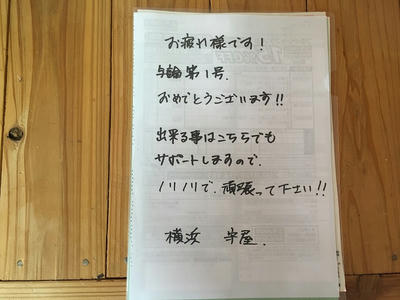 お疲れ様です!
与論第1号.
おめでとうございます!!
出来る事はこちらでも
サポートしますので.
ノリノリで.頑張って下さい!!
横浜 半屋.